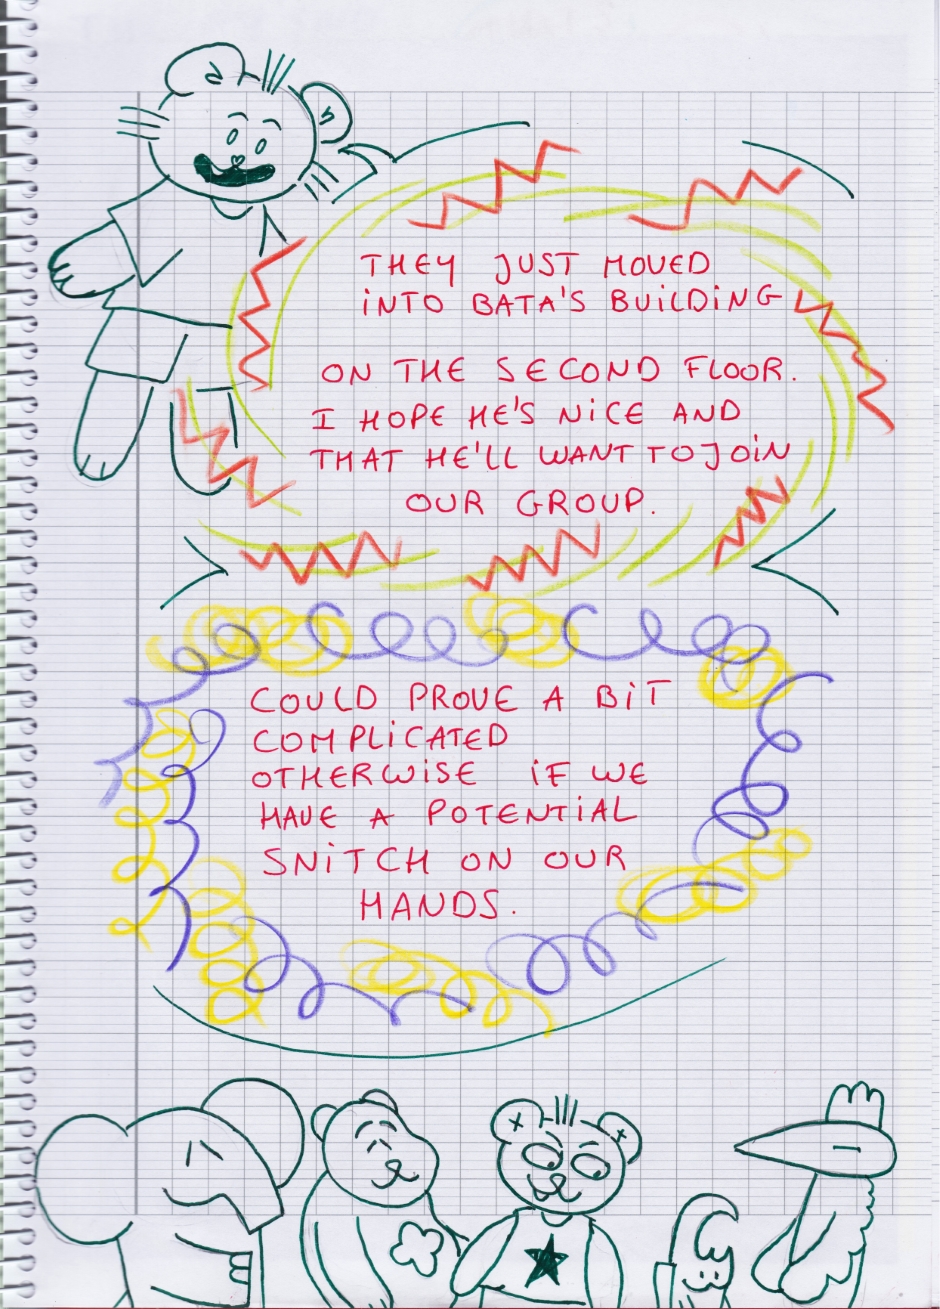 THEY JUST MOVED
iNTO BATA'S BUiLDiNG
ON THE SECOND FLOOR.
I HOPE HE'S NiCE AND
THAT HE'LL WANT TO JOiN
OUR GROUP.
COULD PROVE A BiT
COMPLiCATED
OTHERWiSE iF WE
HAVE A POTENTiAL
SNiTCH ON OUR
HANDS.